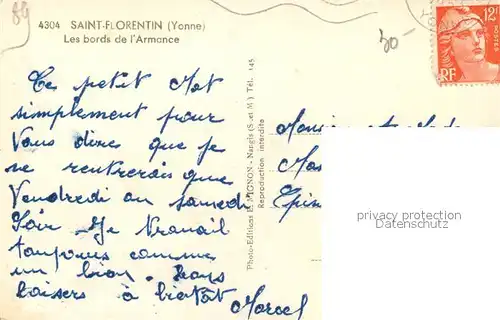 89
4304 SAINT-FLORENTIN (Yonne)
Les bords de l'Armance
50-
12F
POSTES
RF
Ce petit Mot
simplement pour
Vous dires que je
ne rentrerais que
Vendredi au samedi
Soir. Je travail
toujours comme
un lion. Bons
baisers à bientôt
Marcel
Photo-Editions F. MIGNON - Nangis (S.et M.) Tél. 145
Reproduction interdite
Monsieur et
privacy protection
Datenschutz